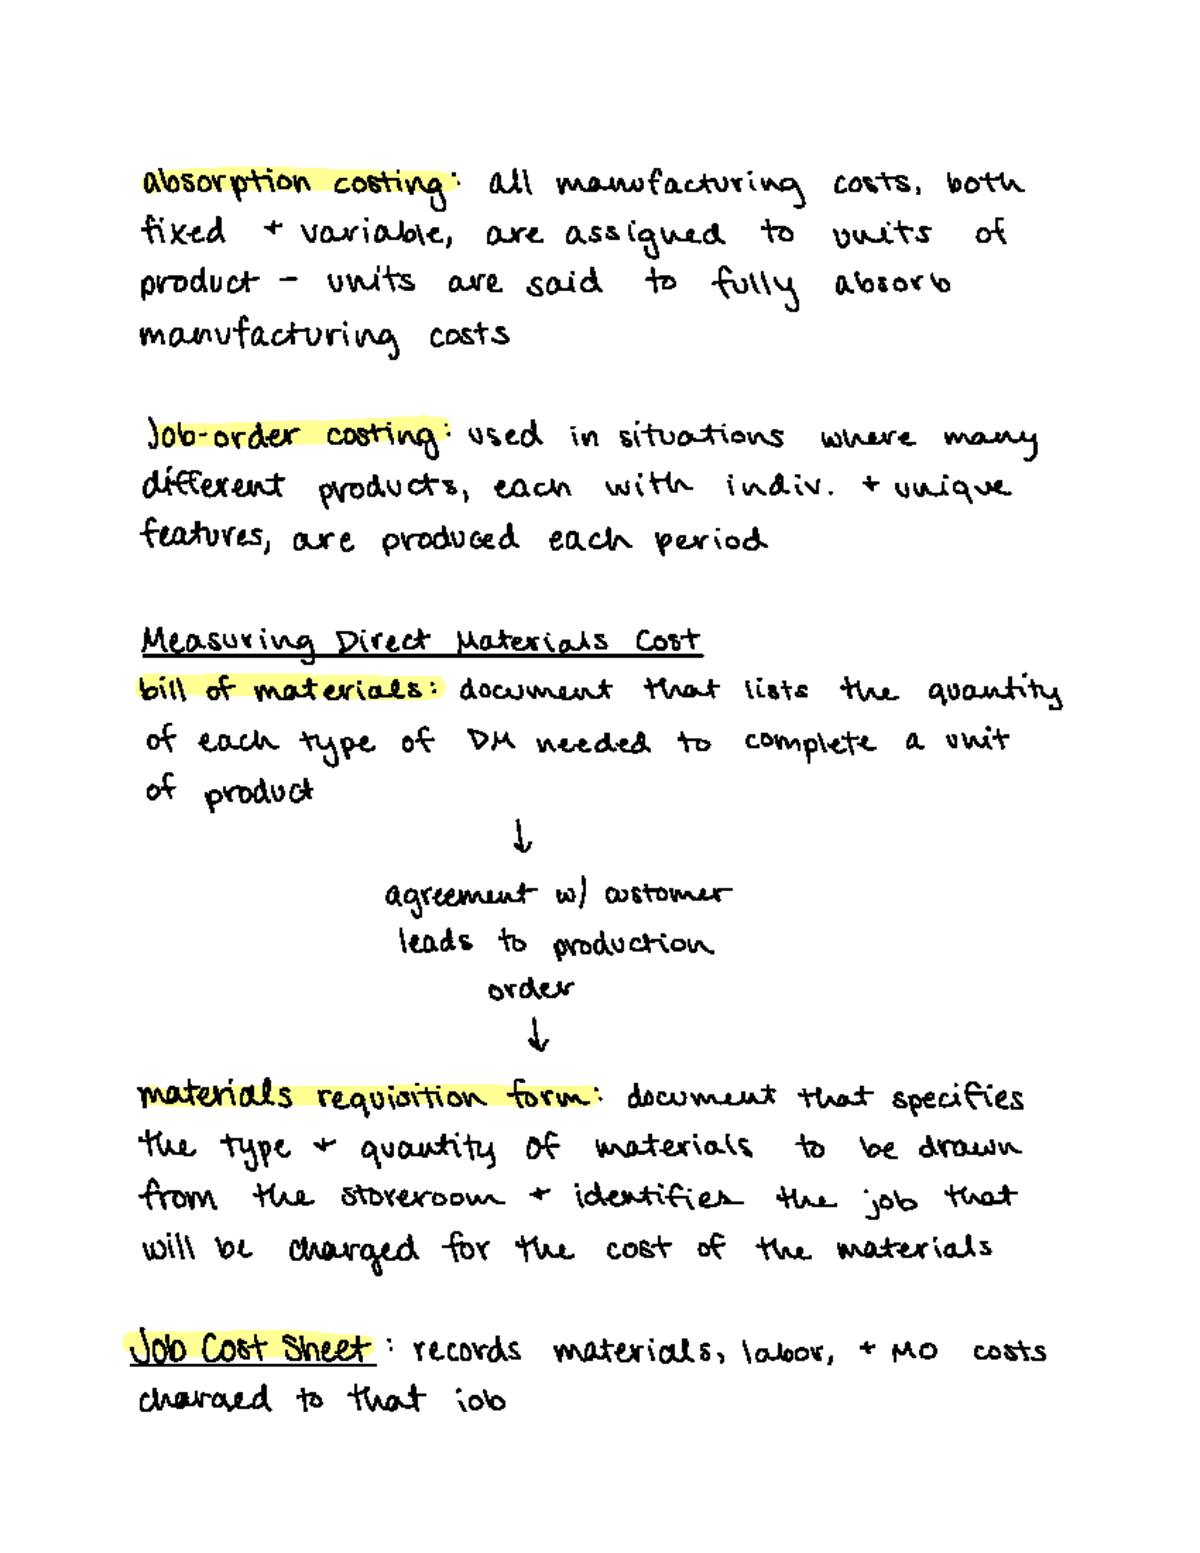 absorption costing: all manufacturing costs, both
fixed + variable, are assigned to units of
product - units are said to fully absorb
manufacturing costs
Job-order costing: used in situations where many
different products, each with indiv. + unique
features, are produced each period
Measuring Direct Materials Cost
bill of materials: document that lists the quantity
of each type of DM needed to complete a unit
of product
↓
agreement w/ customer
leads to production
order
↓
materials requisition form: document that specifies
the type + quantity of materials to be drawn
from the storeroom + identifies the job that
will be charged for the cost of the materials
Job Cost Sheet: records materials, labor, + MO costs
charged to that job